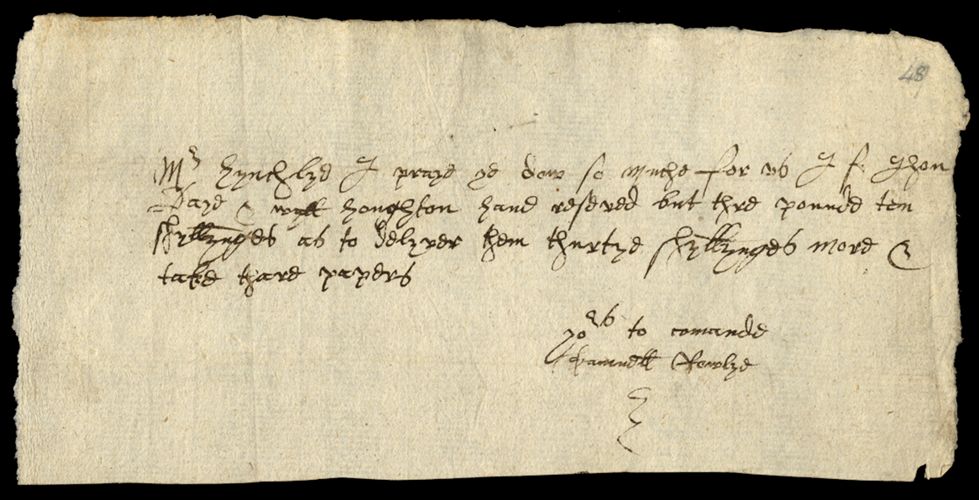 48
Mr hynchlye I praye ye dow so muche for us I f Jhon
Daye & wyll houghton have reseved but thre pounde ten
shyllynges as to delyver them thurtye shyllynges more &
take thare papers
yors to comande
Samuell Rowlye